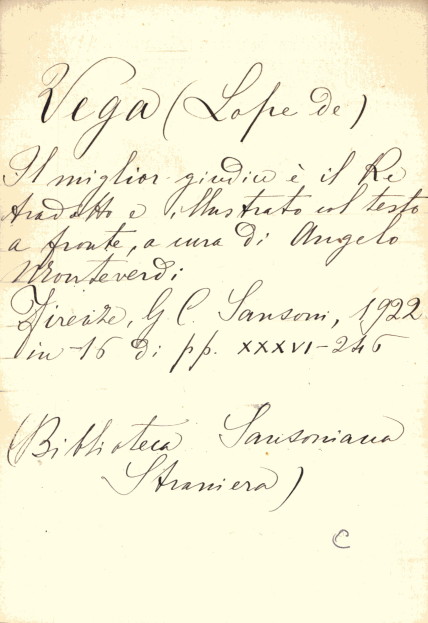 Vega (Lope de)
Il miglior giudice è il Re
tradotto e illustrato col testo
a fronte, a cura di Angelo
Monteverdi
Firenze, G. C. Sansoni, 1922
in 16 di pp. XXXVI-246
(Biblioteca Sansoniana
Straniera)
C